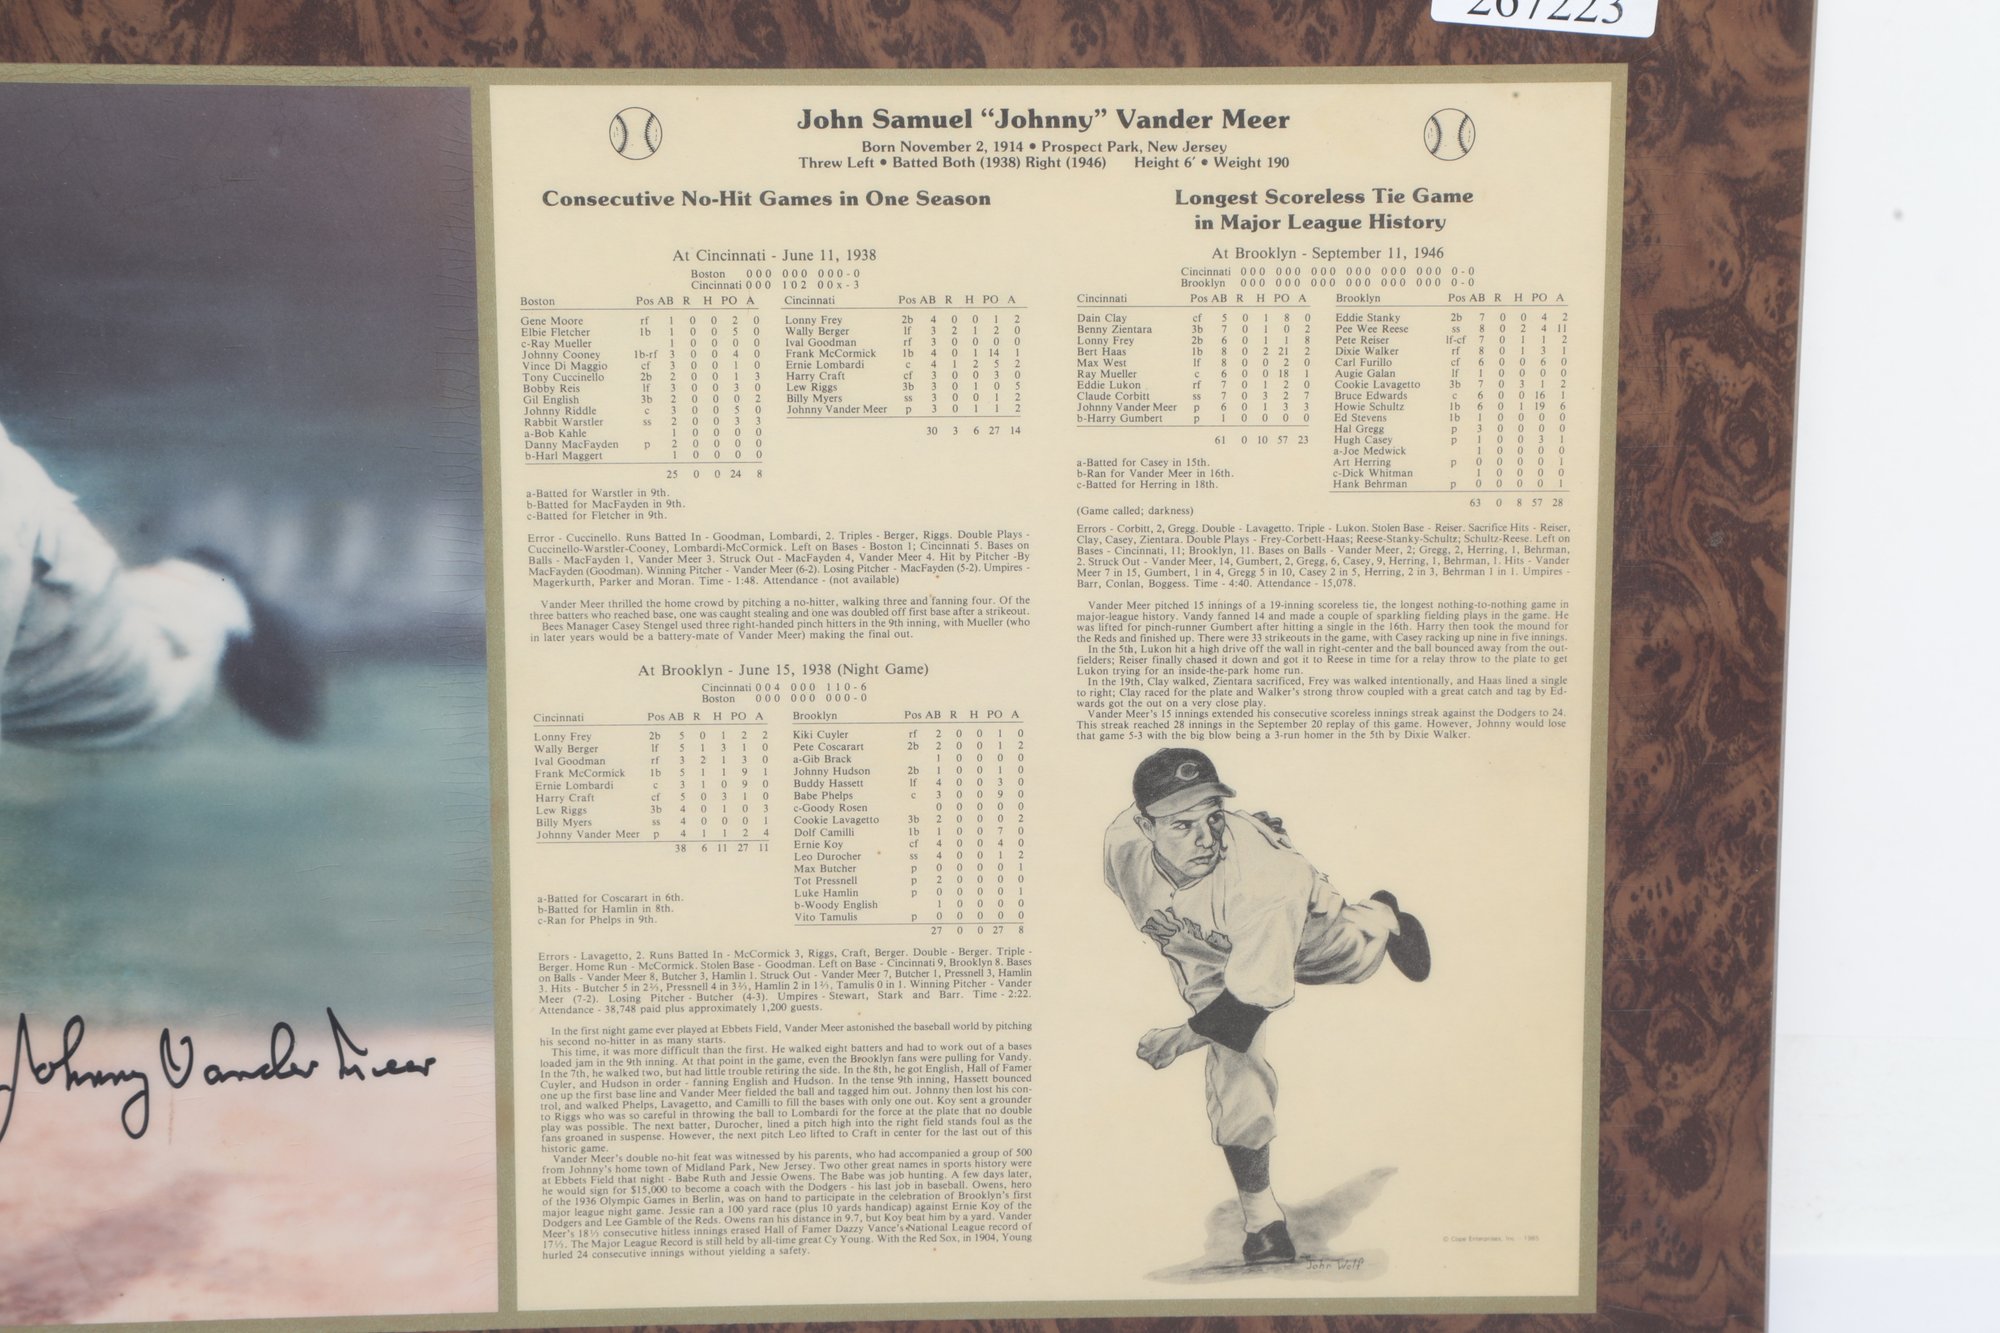 267223
John Samuel “Johnny” Vander Meer
Born November 2, 1914 • Prospect Park, New Jersey
Threw Left • Batted Both (1938) Right (1946) Height 6' • Weight 190
Consecutive No-Hit Games in One Season
At Cincinnati - June 11, 1938
Boston 000 000 000-0
Cincinnati 000 102 00x-3
Boston Pos AB R H PO A
Gene Moore rf 1 0 0 2 0
Elbie Fletcher 1b 1 0 0 5 0
c-Ray Mueller 1 0 0 0 0
Johnny Cooney 1b-rf 3 0 0 4 0
Vince Di Maggio cf 3 0 0 1 0
Tony Cuccinello 2b 2 0 0 1 3
Bobby Reis lf 3 0 0 3 0
Gil English 3b 2 0 0 0 2
Johnny Riddle c 3 0 0 5 0
Rabbit Warstler ss 2 0 0 3 3
a-Bob Kahle 1 0 0 0 0
Danny MacFayden p 2 0 0 0 0
b-Harl Maggert 1 0 0 0 0
25 0 0 24 8
Cincinnati Pos AB R H PO A
Lonny Frey 2b 4 0 0 1 2
Wally Berger lf 3 2 1 2 0
Ival Goodman rf 3 0 0 0 0
Frank McCormick 1b 4 0 1 14 1
Ernie Lombardi c 4 1 2 5 2
Harry Craft cf 3 0 0 3 0
Lew Riggs 3b 3 0 1 0 5
Billy Myers ss 3 0 0 1 2
Johnny Vander Meer p 3 0 1 1 2
30 3 6 27 14
a-Batted for Warstler in 9th.
b-Batted for MacFayden in 9th.
c-Batted for Fletcher in 9th.
Error - Cuccinello. Runs Batted In - Goodman, Lombardi, 2. Triples - Berger, Riggs. Double Plays -
Cuccinello-Warstler-Cooney, Lombardi-McCormick. Left on Bases - Boston 1; Cincinnati 5. Bases on
Balls - MacFayden 1, Vander Meer 3. Struck Out - MacFayden 4, Vander Meer 4. Hit by Pitcher -By
MacFayden (Goodman). Winning Pitcher - Vander Meer (6-2). Losing Pitcher - MacFayden (5-2). Umpires -
Magerkurth, Parker and Moran. Time - 1:48. Attendance - (not available)
Vander Meer thrilled the home crowd by pitching a no-hitter, walking three and fanning four. Of the
three batters who reached base, one was caught stealing and one was doubled off first base after a strikeout.
Bees Manager Casey Stengel used three right-handed pinch hitters in the 9th inning, with Mueller (who
in later years would be a battery-mate of Vander Meer) making the final out.
At Brooklyn - June 15, 1938 (Night Game)
Cincinnati 004 000 110-6
Boston 000 000 000-0
Cincinnati Pos AB R H PO A
Lonny Frey 2b 5 0 1 2 2
Wally Berger lf 5 1 3 1 0
Ival Goodman rf 3 2 1 3 0
Frank McCormick 1b 5 1 1 9 1
Ernie Lombardi c 3 1 0 9 0
Harry Craft cf 5 0 3 1 0
Lew Riggs 3b 4 0 1 0 3
Billy Myers ss 4 0 0 0 1
Johnny Vander Meer p 4 1 1 2 4
38 6 11 27 11
Brooklyn Pos AB R H PO A
Kiki Cuyler rf 2 0 0 1 0
Pete Coscarart 2b 2 0 0 1 2
a-Gib Brack 1 0 0 0 0
Johnny Hudson 2b 1 0 0 1 0
Buddy Hassett lf 4 0 0 3 0
Babe Phelps c 3 0 0 9 0
c-Goody Rosen 0 0 0 0 0
Cookie Lavagetto 3b 2 0 0 0 2
Dolf Camilli 1b 1 0 0 7 0
Ernie Koy cf 4 0 0 4 0
Leo Durocher ss 4 0 0 1 2
Max Butcher p 0 0 0 0 1
Tot Pressnell p 2 0 0 0 0
Luke Hamlin p 0 0 0 0 1
b-Woody English 1 0 0 0 0
Vito Tamulis p 0 0 0 0 0
27 0 0 27 8
a-Batted for Coscarart in 6th.
b-Batted for Hamlin in 8th.
c-Ran for Phelps in 9th.
Errors - Lavagetto, 2. Runs Batted In - McCormick 3, Riggs, Craft, Berger. Double - Berger. Triple -
Berger. Home Run - McCormick. Stolen Base - Goodman. Left on Base - Cincinnati 9, Brooklyn 8. Bases
on Balls - Vander Meer 8, Butcher 3, Hamlin 1. Struck Out - Vander Meer 7, Butcher 1, Pressnell 3, Hamlin
3. Hits - Butcher 5 in 2⅔, Pressnell 4 in 3⅔, Hamlin 2 in 1⅔, Tamulis 0 in 1. Winning Pitcher - Vander
Meer (7-2). Losing Pitcher - Butcher (4-3). Umpires - Stewart, Stark and Barr. Time - 2:22.
Attendance - 38,748 paid plus approximately 1,200 guests.
In the first night game ever played at Ebbets Field, Vander Meer astonished the baseball world by pitching
his second no-hitter in as many starts.
This time, it was more difficult than the first. He walked eight batters and had to work out of a bases
loaded jam in the 9th inning. At that point in the game, even the Brooklyn fans were pulling for Vandy.
In the 7th, he walked two, but had little trouble retiring the side. In the 8th, he got English, Hall of Famer
Cuyler, and Hudson in order - fanning English and Hudson. In the tense 9th inning, Hassett bounced
one up the first base line and Vander Meer fielded the ball and tagged him out. Johnny then lost his con-
trol, and walked Phelps, Lavagetto, and Camilli to fill the bases with only one out. Koy sent a grounder
to Riggs who was so careful in throwing the ball to Lombardi for the force at the plate that no double
play was possible. The next batter, Durocher, lined a pitch high into the right field stands foul as the
fans groaned in suspense. However, the next pitch Leo lifted to Craft in center for the last out of this
historic game.
Vander Meer's double no-hit feat was witnessed by his parents, who had accompanied a group of 500
from Johnny's home town of Midland Park, New Jersey. Two other great names in sports history were
at Ebbets Field that night - Babe Ruth and Jessie Owens. The Babe was job hunting. A few days later,
he would sign for $15,000 to become a coach with the Dodgers - his last job in baseball. Owens, hero
of the 1936 Olympic Games in Berlin, was on hand to participate in the celebration of Brooklyn's first
major league night game. Jessie ran a 100 yard race (plus 10 yards handicap) against Ernie Koy of the
Dodgers and Lee Gamble of the Reds. Owens ran his distance in 9.7, but Koy beat him by a yard. Vander
Meer's 18⅓ consecutive hitless innings erased Hall of Famer Dazzy Vance's National League record of
17⅓. The Major League Record is still held by all-time great Cy Young. With the Red Sox, in 1904, Young
hurled 24 consecutive innings without yielding a safety.
Longest Scoreless Tie Game
in Major League History
At Brooklyn - September 11, 1946
Cincinnati 000 000 000 000 000 000 0-0
Brooklyn 000 000 000 000 000 000 0-0
Cincinnati Pos AB R H PO A
Dain Clay cf 5 0 1 8 0
Benny Zientara 3b 7 0 1 0 2
Lonny Frey 2b 6 0 1 1 8
Bert Haas 1b 8 0 2 21 2
Max West lf 8 0 0 2 0
Ray Mueller c 6 0 0 18 1
Eddie Lukon rf 7 0 1 2 0
Claude Corbitt ss 7 0 3 2 7
Johnny Vander Meer p 6 0 1 3 3
b-Harry Gumbert p 1 0 0 0 0
61 0 10 57 23
Brooklyn Pos AB R H PO A
Eddie Stanky 2b 7 0 0 4 2
Pee Wee Reese ss 8 0 2 4 11
Pete Reiser lf-cf 7 0 1 1 2
Dixie Walker rf 8 0 1 3 1
Carl Furillo cf 6 0 0 6 0
Augie Galan lf 1 0 0 0 0
Cookie Lavagetto 3b 7 0 3 1 2
Bruce Edwards c 6 0 0 16 1
Howie Schultz 1b 6 0 1 19 6
Ed Stevens 1b 1 0 0 0 0
Hal Gregg p 3 0 0 0 0
Hugh Casey p 1 0 0 3 1
a-Joe Medwick 1 0 0 0 0
Art Herring p 0 0 0 0 1
c-Dick Whitman 1 0 0 0 0
Hank Behrman p 0 0 0 0 1
63 0 8 57 28
a-Batted for Casey in 15th.
b-Ran for Vander Meer in 16th.
c-Batted for Herring in 18th.
(Game called; darkness)
Errors - Corbitt, 2, Gregg. Double - Lavagetto. Triple - Lukon. Stolen Base - Reiser. Sacrifice Hits - Reiser,
Clay, Casey, Zientara. Double Plays - Frey-Corbett-Haas; Reese-Stanky-Schultz; Schultz-Reese. Left on
Bases - Cincinnati, 11; Brooklyn, 11. Bases on Balls - Vander Meer, 2; Gregg, 2, Herring, 1, Behrman,
2. Struck Out - Vander Meer, 14, Gumbert, 2, Gregg, 6, Casey, 9, Herring, 1, Behrman, 1. Hits - Vander
Meer 7 in 15, Gumbert, 1 in 4, Gregg 5 in 10, Casey 2 in 5, Herring, 2 in 3, Behrman 1 in 1. Umpires -
Barr, Conlan, Boggess. Time - 4:40. Attendance - 15,078.
Vander Meer pitched 15 innings of a 19-inning scoreless tie, the longest nothing-to-nothing game in
major-league history. Vandy fanned 14 and made a couple of sparkling fielding plays in the game. He
was lifted for pinch-runner Gumbert after hitting a single in the 16th. Harry then took the mound for
the Reds and finished up. There were 33 strikeouts in the game, with Casey racking up nine in five innings.
In the 5th, Lukon hit a high drive off the wall in right-center and the ball bounced away from the out-
fielders; Reiser finally chased it down and got it to Reese in time for a relay throw to the plate to get
Lukon trying for an inside-the-park home run.
In the 19th, Clay walked, Zientara sacrificed, Frey was walked intentionally, and Haas lined a single
to right; Clay raced for the plate and Walker's strong throw coupled with a great catch and tag by Ed-
wards got the out on a very close play.
Vander Meer's 15 innings extended his consecutive scoreless innings streak against the Dodgers to 24.
This streak reached 28 innings in the September 20 replay of this game. However, Johnny would lose
that game 5-3 with the big blow being a 3-run homer in the 5th by Dixie Walker.
C
John Wolf
© Cope Enterprises, Inc. 1985
Johnny Vander Meer